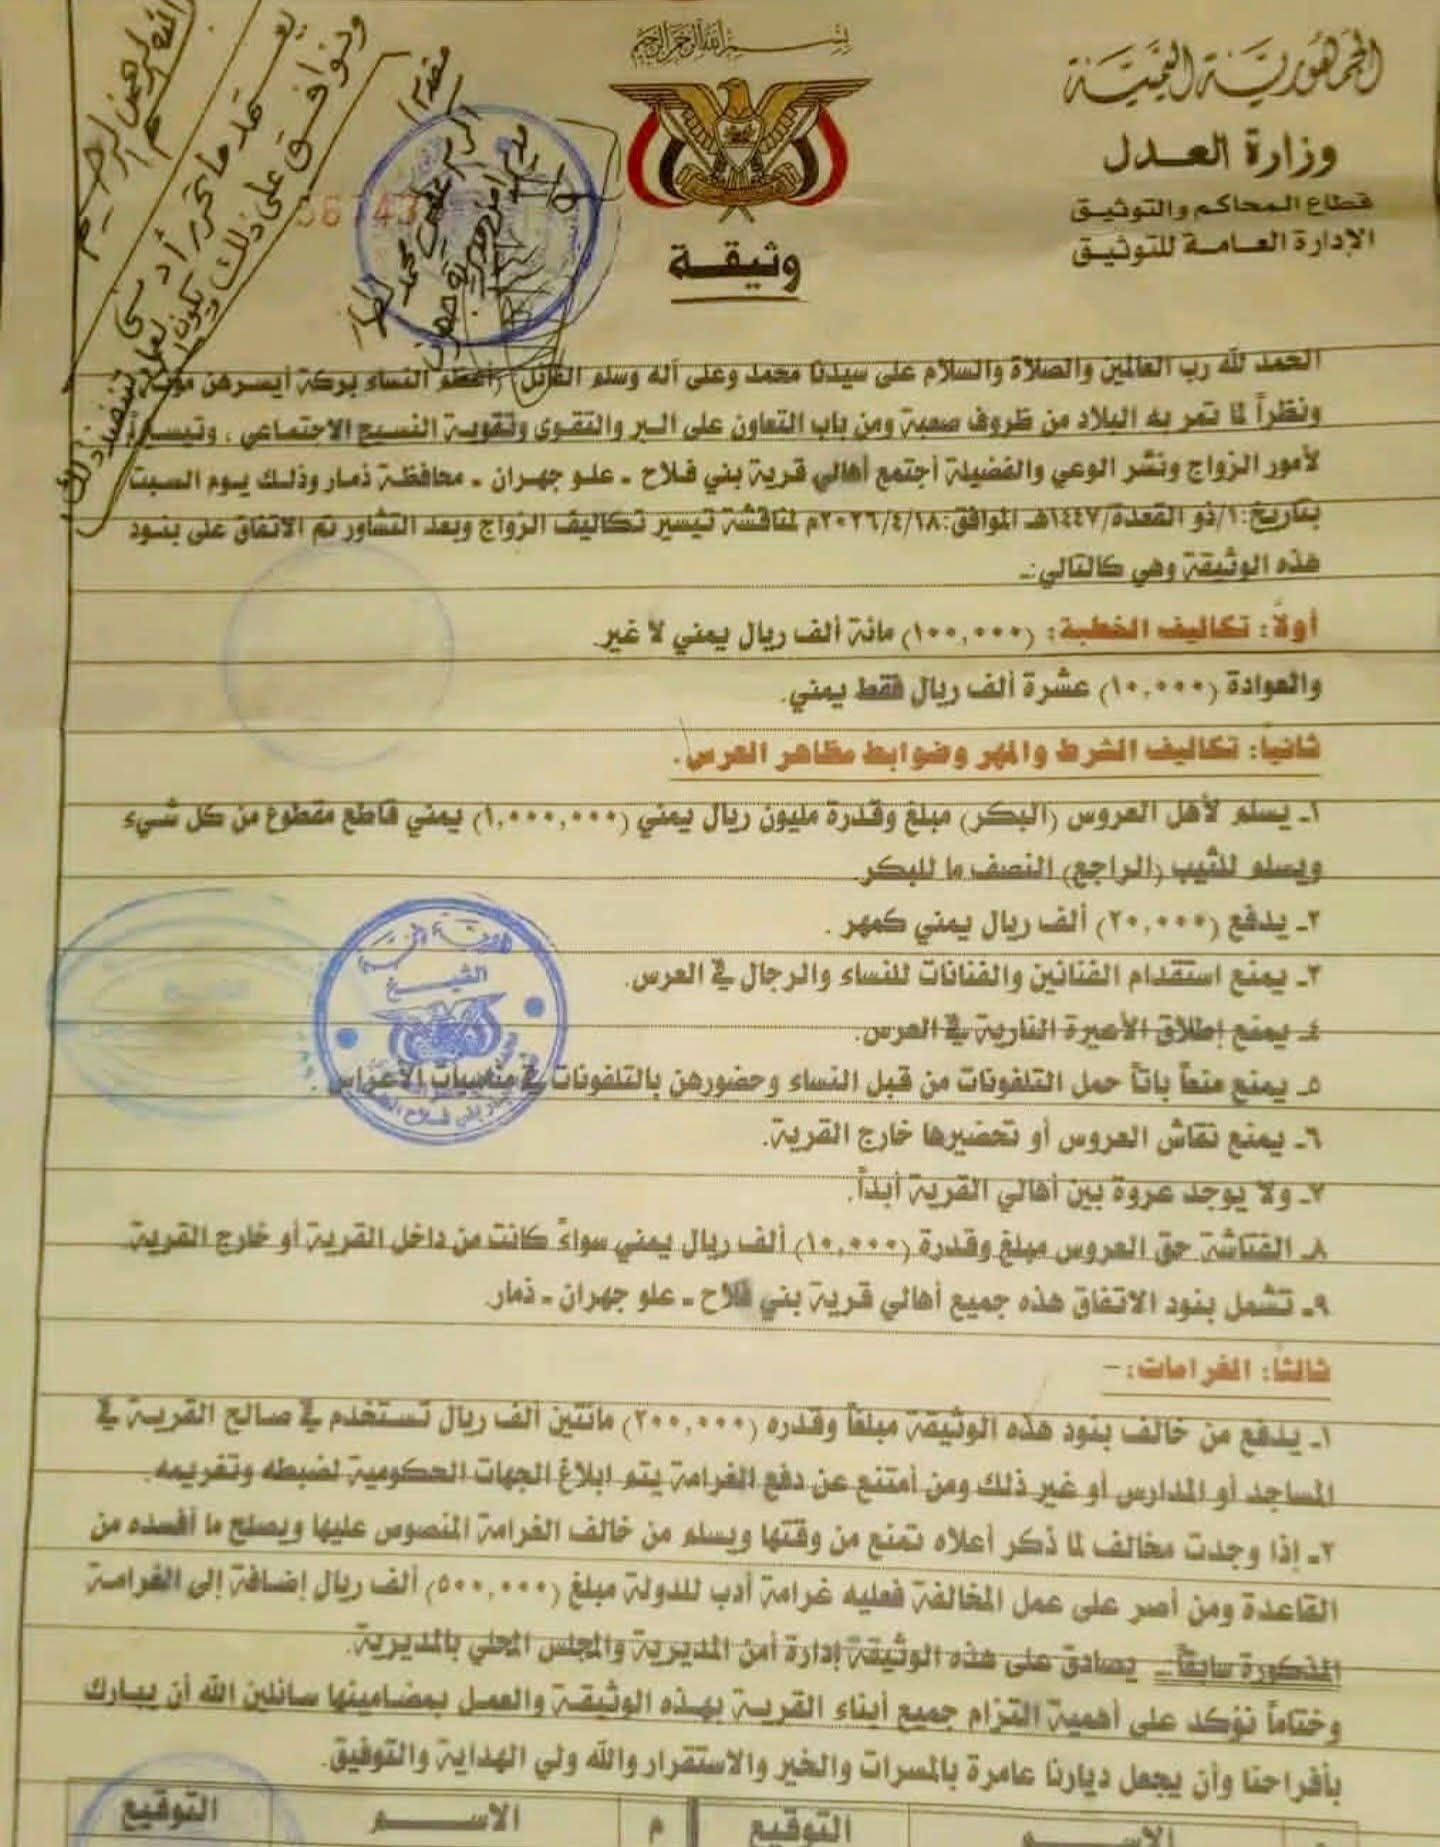 بسم الله الرحمن الرحيم
الجمهورية اليمنية
وزارة العدل
قطاع المحاكم والتوثيق
الإدارة العامة للتوثيق
وثيقة
الله الرحمن الرحيم
يعتمد ما تحرر أدنى
ونوافق على ذلك ويكون
الحمد لله رب العالمين والصلاة والسلام على سيدنا محمد وعلى آله وسلم القائل (أعظم النساء بركة أيسرهن مؤنة
ونظراً لما تمر به البلاد من ظروف صعبة ومن باب التعاون على البر والتقوى وتقوية النسيج الاجتماعي ، وتيسيراً
لأمور الزواج ونشر الوعي والفضيلة أجتمع أهالي قرية بني فلاح - علو جهران - محافظة ذمار وذلك يوم السبت
بتاريخ:١/ذو القعدة/١٤٤٧هـ الموافق:٢٠٢٦/٤/١٨م لمناقشة تيسير تكاليف الزواج وبعد التشاور تم الاتفاق على بنود
هذه الوثيقة وهي كالتالي:ـ
أولاً: تكاليف الخطبة: (١٠٠,٠٠٠) مائة ألف ريال يمني لا غير.
والعوادة (١٠,٠٠٠) عشرة ألف ريال فقط يمني.
ثانياً: تكاليف الشرط والمهر وضوابط مظاهر العرس.
١ـ يسلم لأهل العروس (البكر) مبلغ وقدرة مليون ريال يمني (١,٠٠٠,٠٠٠) يمني قاطع مقطوع من كل شيء
ويسلم للثيب (الراجع) النصف ما للبكر.
٢ـ يدفع (٢٠,٠٠٠) ألف ريال يمني كمهر .
٣ـ يمنع استقدام الفنانين والفنانات للنساء والرجال في العرس.
٤ـ يمنع إطلاق الأعيرة النارية في العرس.
٥ـ يمنع منعاً باتاً حمل التلفونات من قبل النساء وحضورهن بالتلفونات في مناسبات الأعراس .
٦ـ يمنع نقاش العروس أو تحضيرها خارج القرية.
٧ـ ولا يوجد عروة بين أهالي القرية أبداً.
٨ـ الفتاشة حق العروس مبلغ وقدرة (١٠,٠٠٠) ألف ريال يمني سواءً كانت من داخل القرية أو خارج القرية.
٩ـ تشمل بنود الاتفاق هذه جميع أهالي قرية بني فلاح - علو جهران - ذمار.
الشيخ
ثالثاً: الغرامات:-
١ـ يدفع من خالف بنود هذه الوثيقة مبلغاً وقدره (٢٠٠,٠٠٠) مائتين ألف ريال تستخدم في صالح القرية في
المساجد أو المدارس أو غير ذلك ومن أمتنع عن دفع الغرامة يتم ابلاغ الجهات الحكومية لضبطه وتغريمه.
٢ـ إذا وجدت مخالف لما ذكر أعلاه تمنع من وقتها ويسلم من خالف الغرامة المنصوص عليها ويصلح ما أفسده من
القاعدة ومن أصر على عمل المخالفة فعليه غرامة أدب للدولة مبلغ (٥٠٠,٠٠٠) ألف ريال إضافة إلى الغرامة
المذكورة سابقاً. يصادق على هذه الوثيقة إدارة أمن المديرية والمجلس المحلي بالمديرية.
وختاماً نؤكد على أهمية التزام جميع أبناء القرية بهذه الوثيقة والعمل بمضامينها سائلين الله أن يبارك
بأفراحنا وأن يجعل ديارنا عامرة بالمسرات والخير والاستقرار والله ولي الهداية والتوفيق.
الاسم التوقيع م الاسم التوقيع